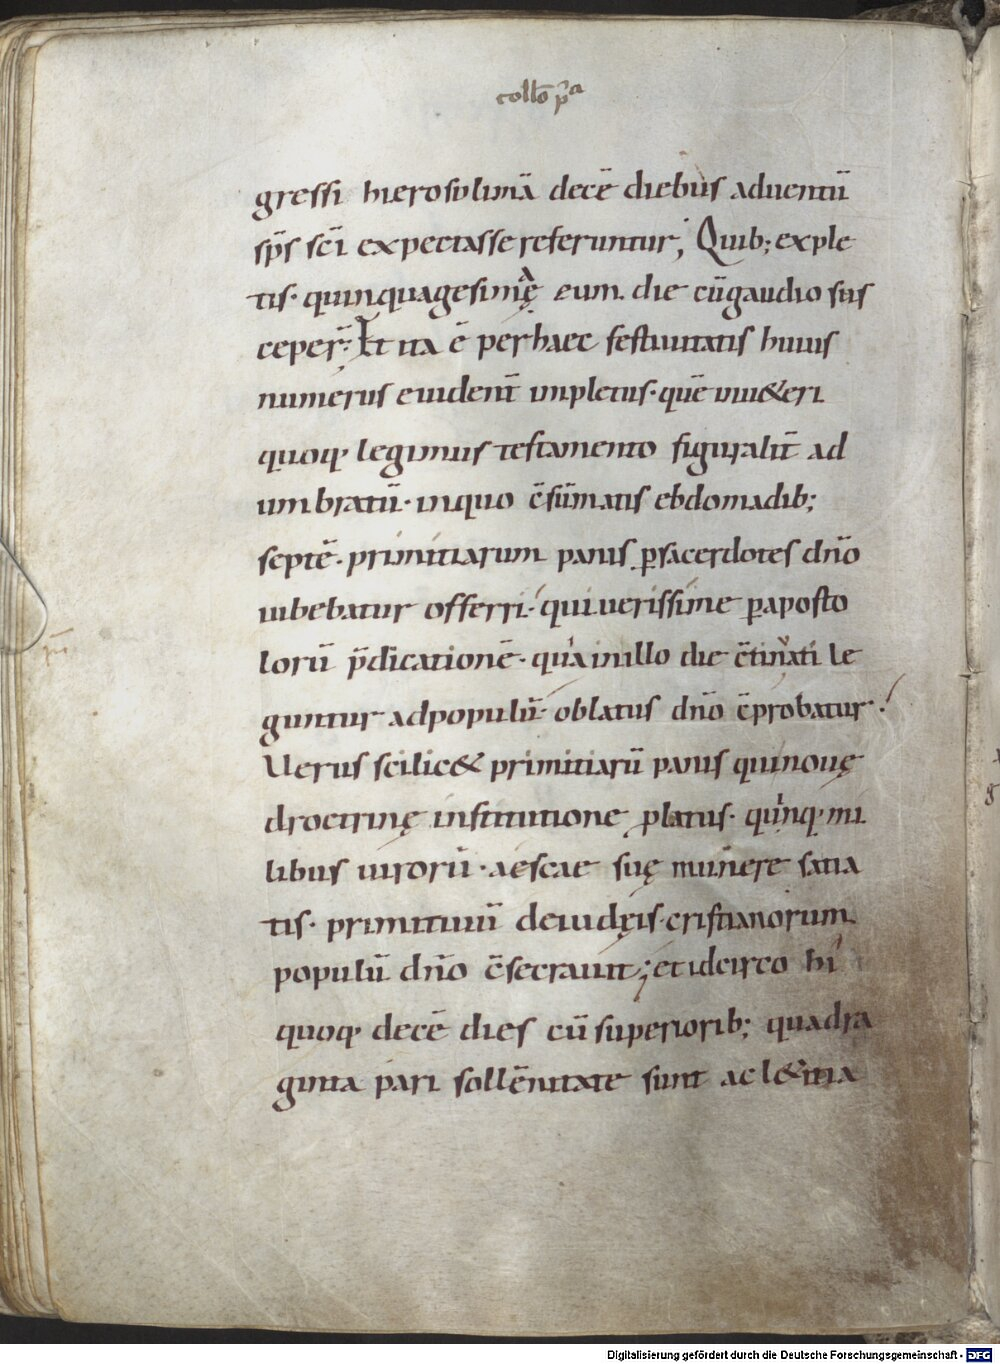 collo pͣ
gressi hierosolimā decē diebus aduentū
sp̄s sc̄i expectasse referuntur; Quib; exple
tis· quinquagesimę eum die cū gaudio sus
ceper̄· Et ita ē per haec festiuitatis huius
numerus euident̄ impletus· quē in ui&eri
quoq· legimus testamento figuralit̄ ad
umbratū· inquo c̄sūmatis ebdomadib;
septē· primitiarum panis ꝑ sacerdotes dn̄o
iubebatur offerri· qui uerissime ꝑ aposto
lorū p̄dicationē· qua in illo die c̄tinati le
guntur ad populū oblatus dn̄o c̄probatur·
Uerus scilic& primitiarū panis qui nouę
droctrinę institutione ꝓlatus· quinq· mi
libus uirorū· aescae suę munere satia
tis· primitiuū de iudęis cristianorum
populū dn̄o c̄secrauit; et idcirco hi
quoq· decē dies cū superiorib; quadra
ginta pari sollēnitate sunt ac l&itia
Digitalisierung gefördert durch die Deutsche Forschungsgemeinschaft - DFG